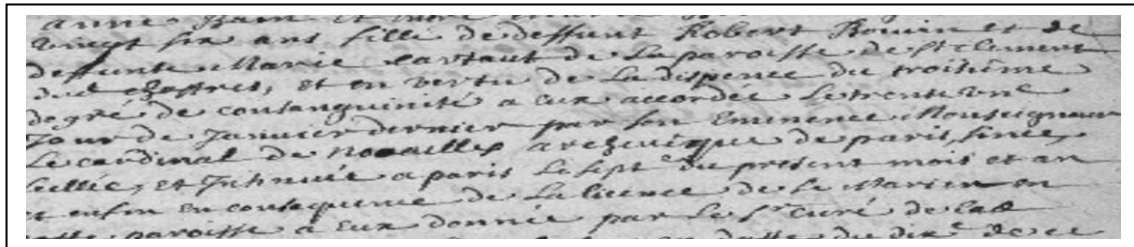 anne
vingt six ans fille de deffunt Robert Bouin et de
deffunte Marie Cartaut de la paroisse de St Clement
dud chastres, et en vertu de la dispence du troisiême
degré de consanguinité a eux accordée le trente une
Jour de Janvier dernier par son Eminence Monseigneur
Le cardinal de Noailles archevêque de paris, sinée,
sellée, et Insinuée a paris le sept e du present mois et an
et enfin en consequence de la licence de se marier en
cette paroisse a eux donnée par le Sr curé de lad
datte du dix e de ce